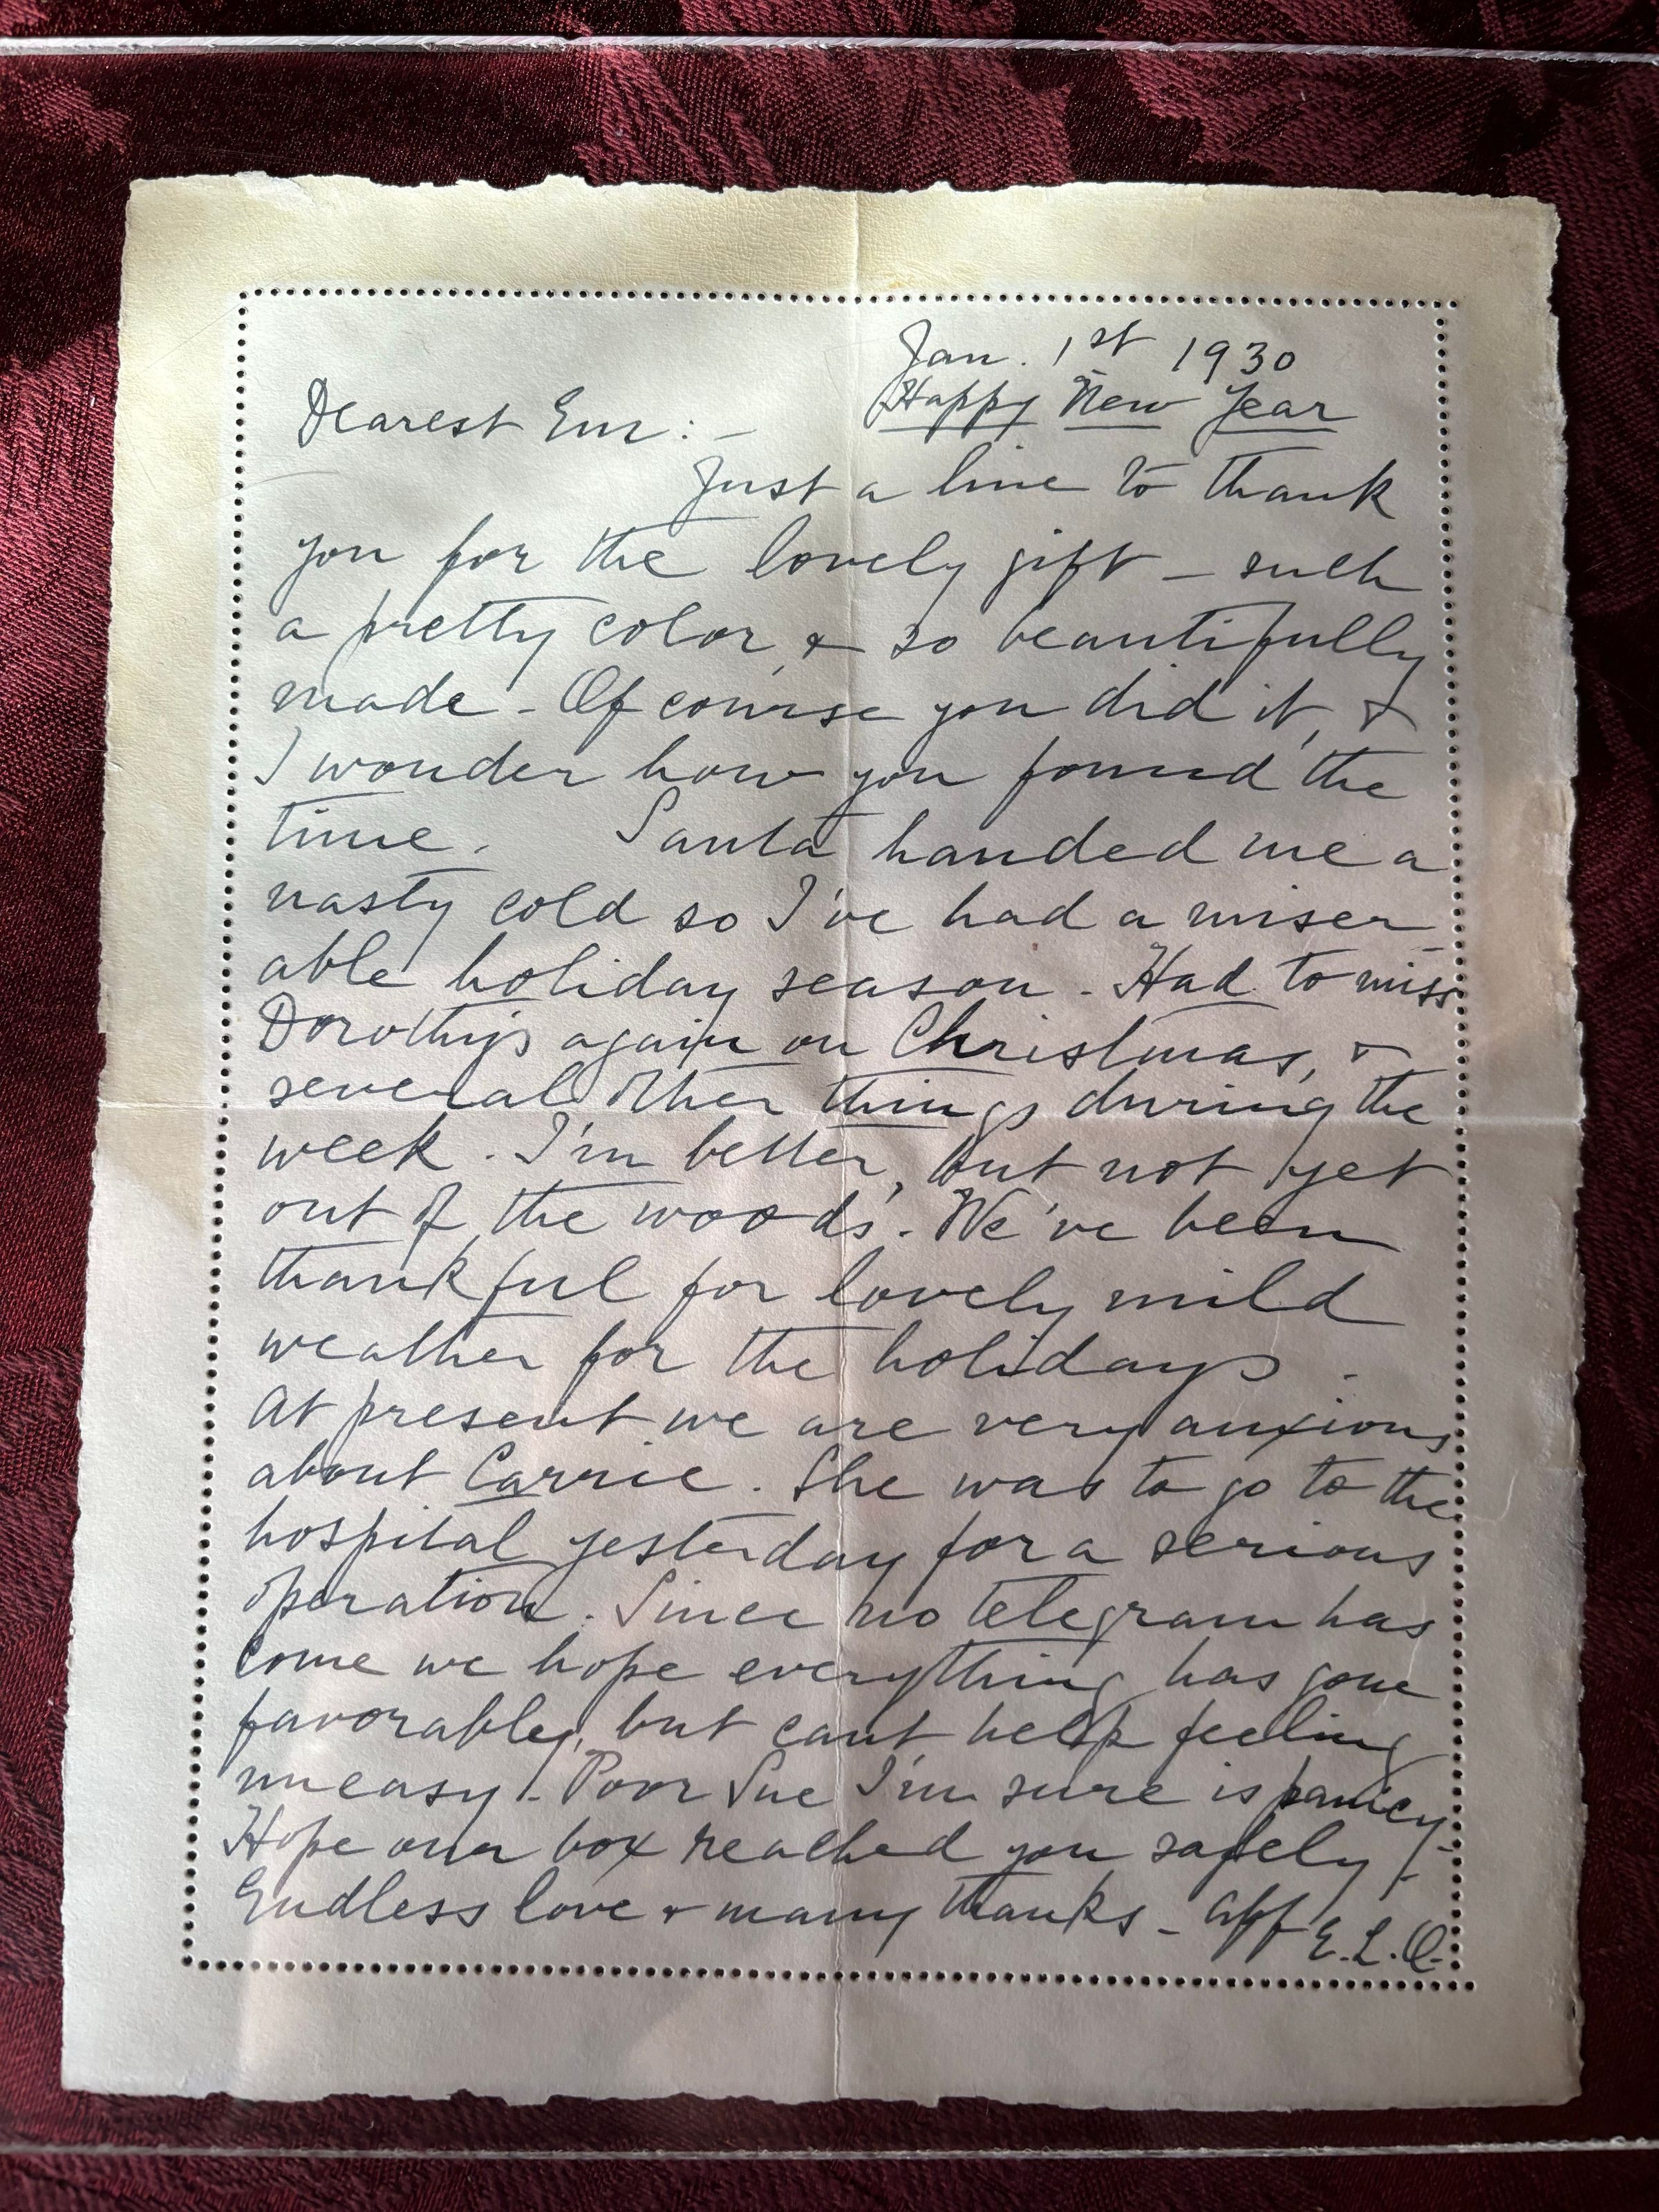 Jan. 1st 1930
Happy New Year
Dearest Em: -
Just a line to thank
you for the lovely gift - such
a pretty color, & so beautifully
made - Of course you did it, &
I wonder how you found the
time. Santa handed me a
nasty cold so I've had a miser-
able holiday season - Had to miss
Dorothy's again on Christmas, &
several other things during the
week. I'm better, but not yet
out of the woods. We've been
thankful for lovely mild
weather for the holidays.
At present we are very anxious
about Carrie. She was to go to the
hospital yesterday for a serious
operation. Since no telegram has
come we hope everything has gone
favorably, but can't help feeling
uneasy. - Poor Sue I'm sure is panicy -
Hope our box reached you safely! -
Endless love & many thanks - Aff E.L.O.